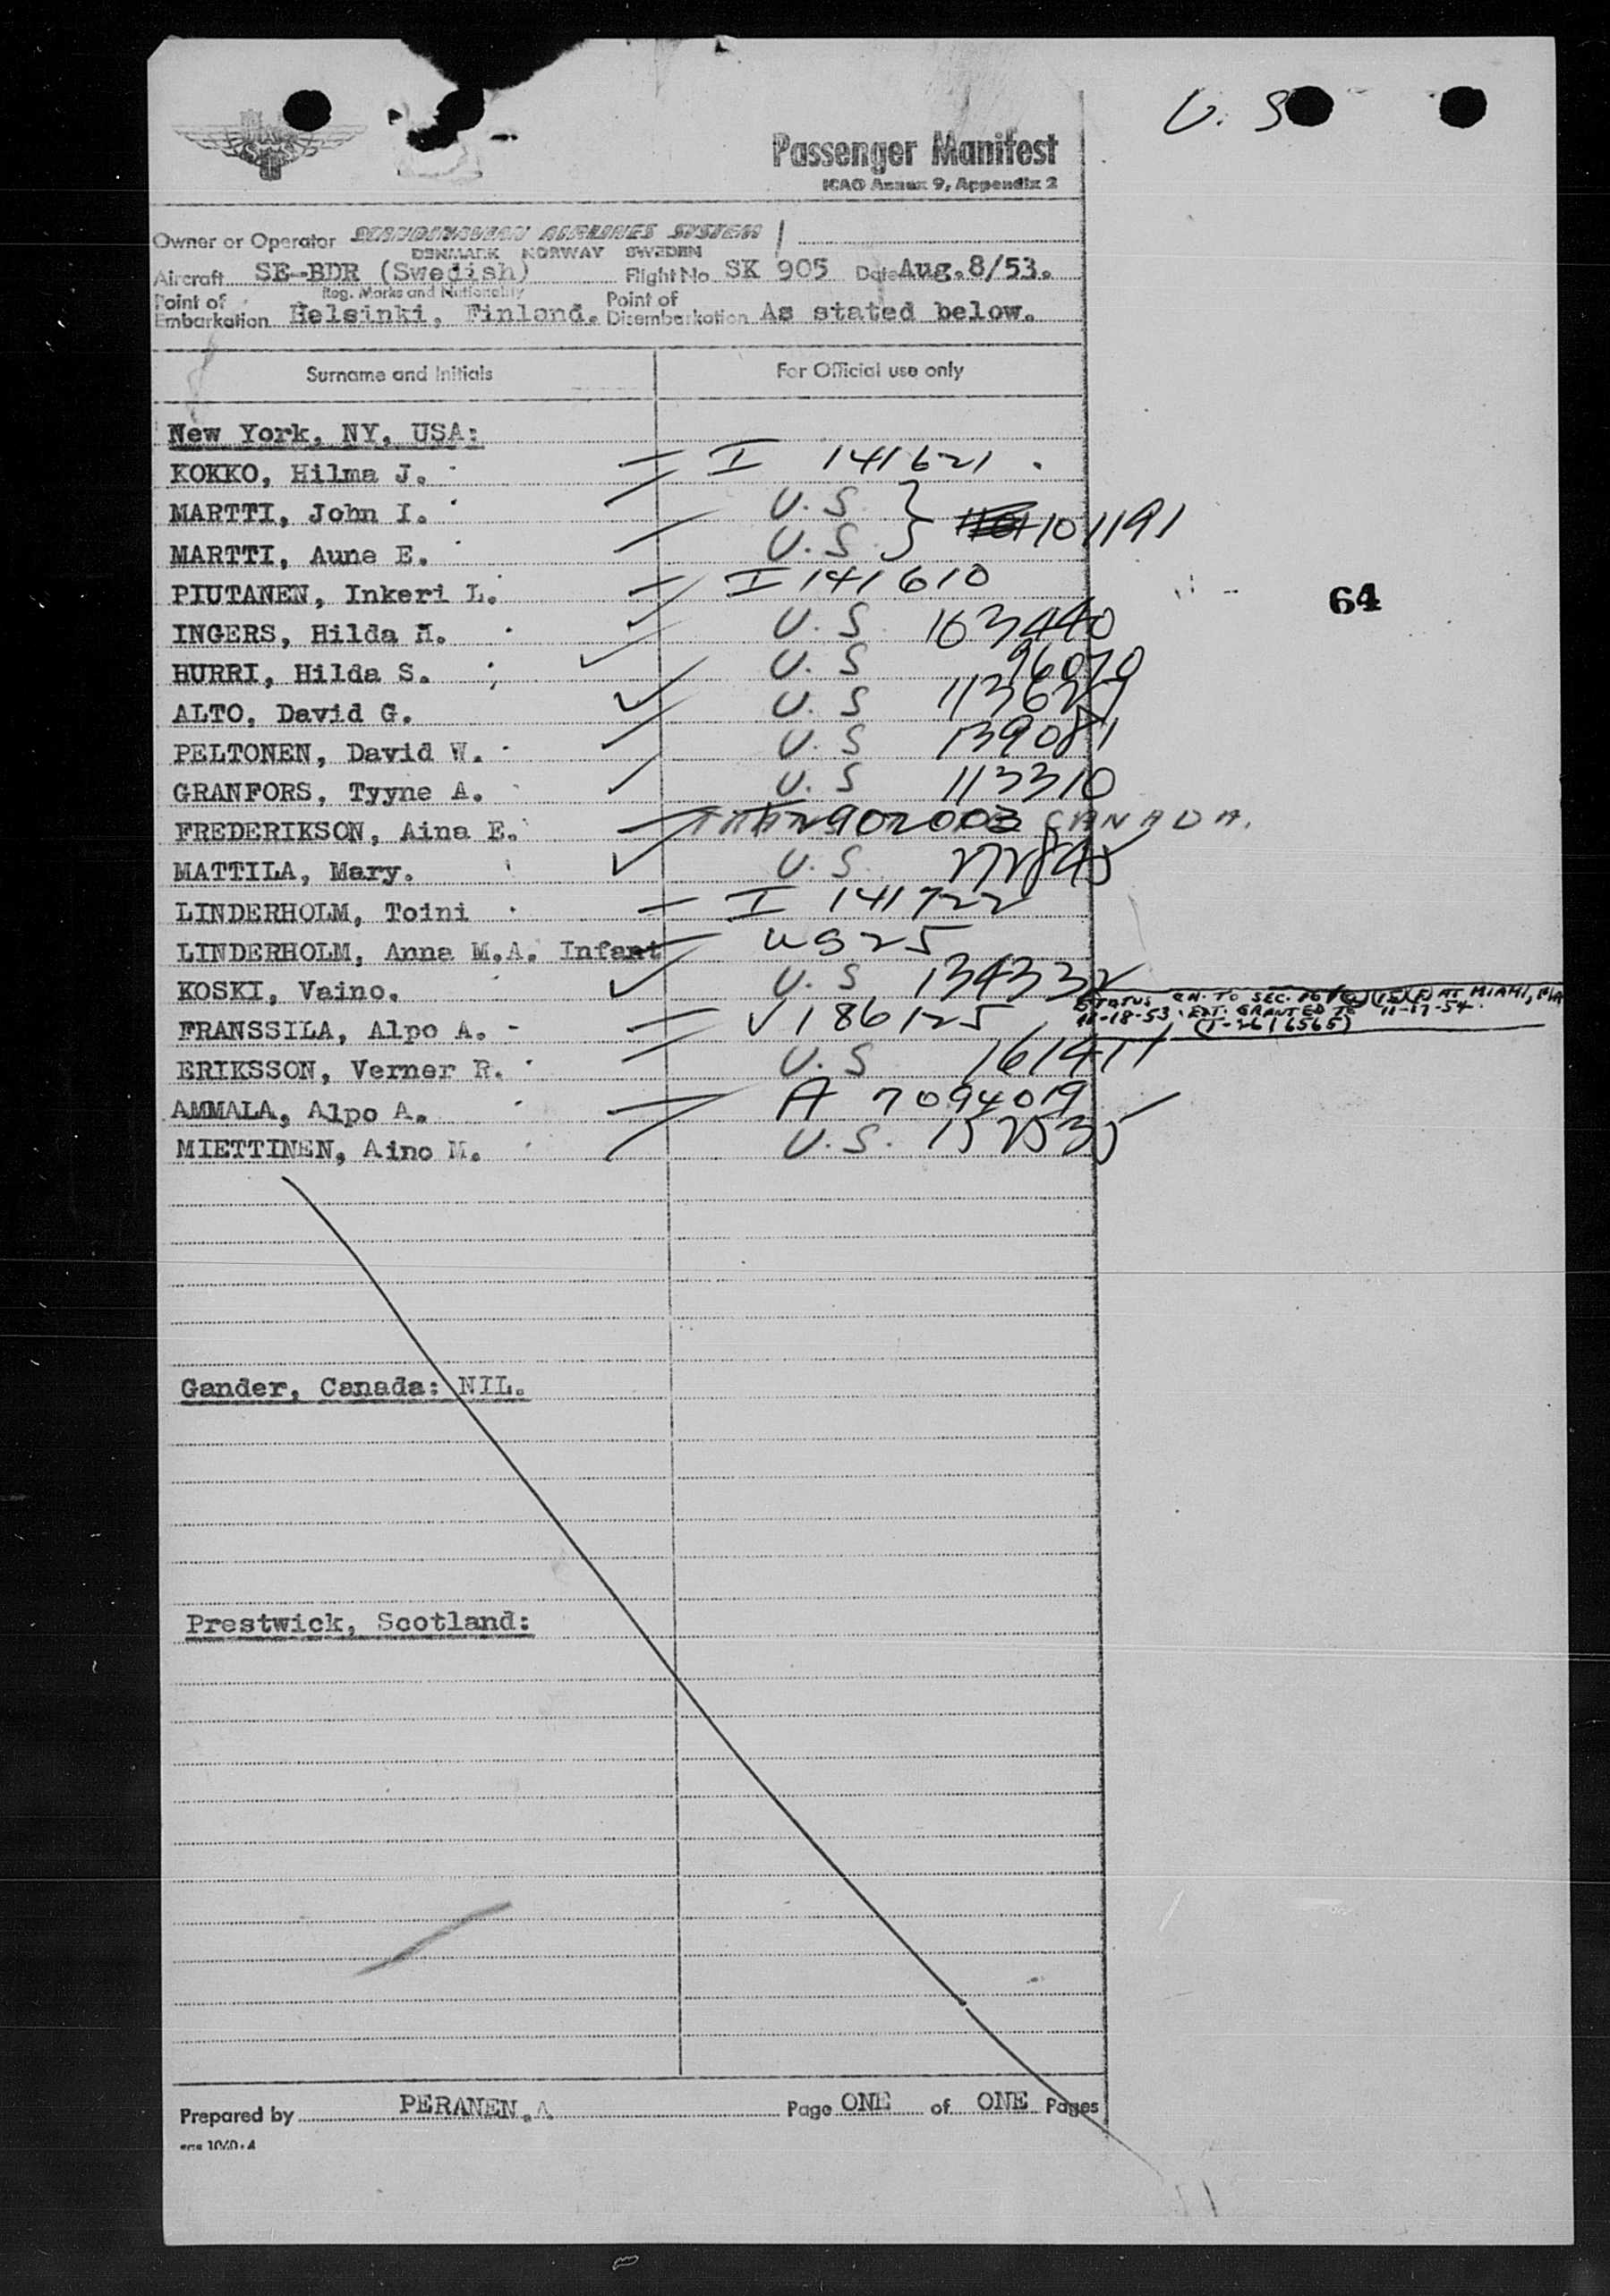 U. S
Passenger Manifest
ICAO Annex 9, Appendix 2
Owner or Operator SCANDINAVIAN AIRLINES SYSTEM
DENMARK NORWAY SWEDEN
Aircraft SE-BDR (Swedish) Flight No. SK 905 Date Aug. 8/53.
Reg. Marks and Nationality
Point of Embarkation Helsinki, Finland. Point of Disembarkation As stated below.
Surname and Initials For Official use only
New York, NY, USA:
KOKKO, Hilma J. I 141621
MARTTI, John I. U.S.
MARTTI, Aune E. U.S. 101191
PIUTANEN, Inkeri L. I 141610
64
INGERS, Hilda H. U.S. 163440
HURRI, Hilda S. U.S 96070
ALTO, David G. U.S
PELTONEN, David W. U.S 139081
GRANFORS, Tyyne A. U.S 113310
FREDERIKSON, Aina E. CANADA.
MATTILA, Mary. U.S.
LINDERHOLM, Toini I 141722
LINDERHOLM, Anna M.A. Infant
KOSKI, Vaino. U.S 134332
STATUS CH. TO SEC. AT MIAMI, FLA
FRANSSILA, Alpo A. V 186125 11-18-53. EXT. GRANTED TO 11-17-54.
(T-2616565)
ERIKSSON, Verner R. U.S
AMMALA, Alpo A. A 7094019
MIETTINEN, Aino M. U.S. 152535
Gander, Canada: NIL.
Prestwick, Scotland:
Prepared by PERANEN.A Page ONE of ONE Pages